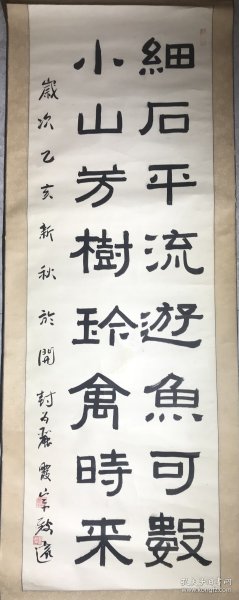 細石平流遊魚可數
小山芳樹珍禽時来
歲次乙亥新秋於開封
霞